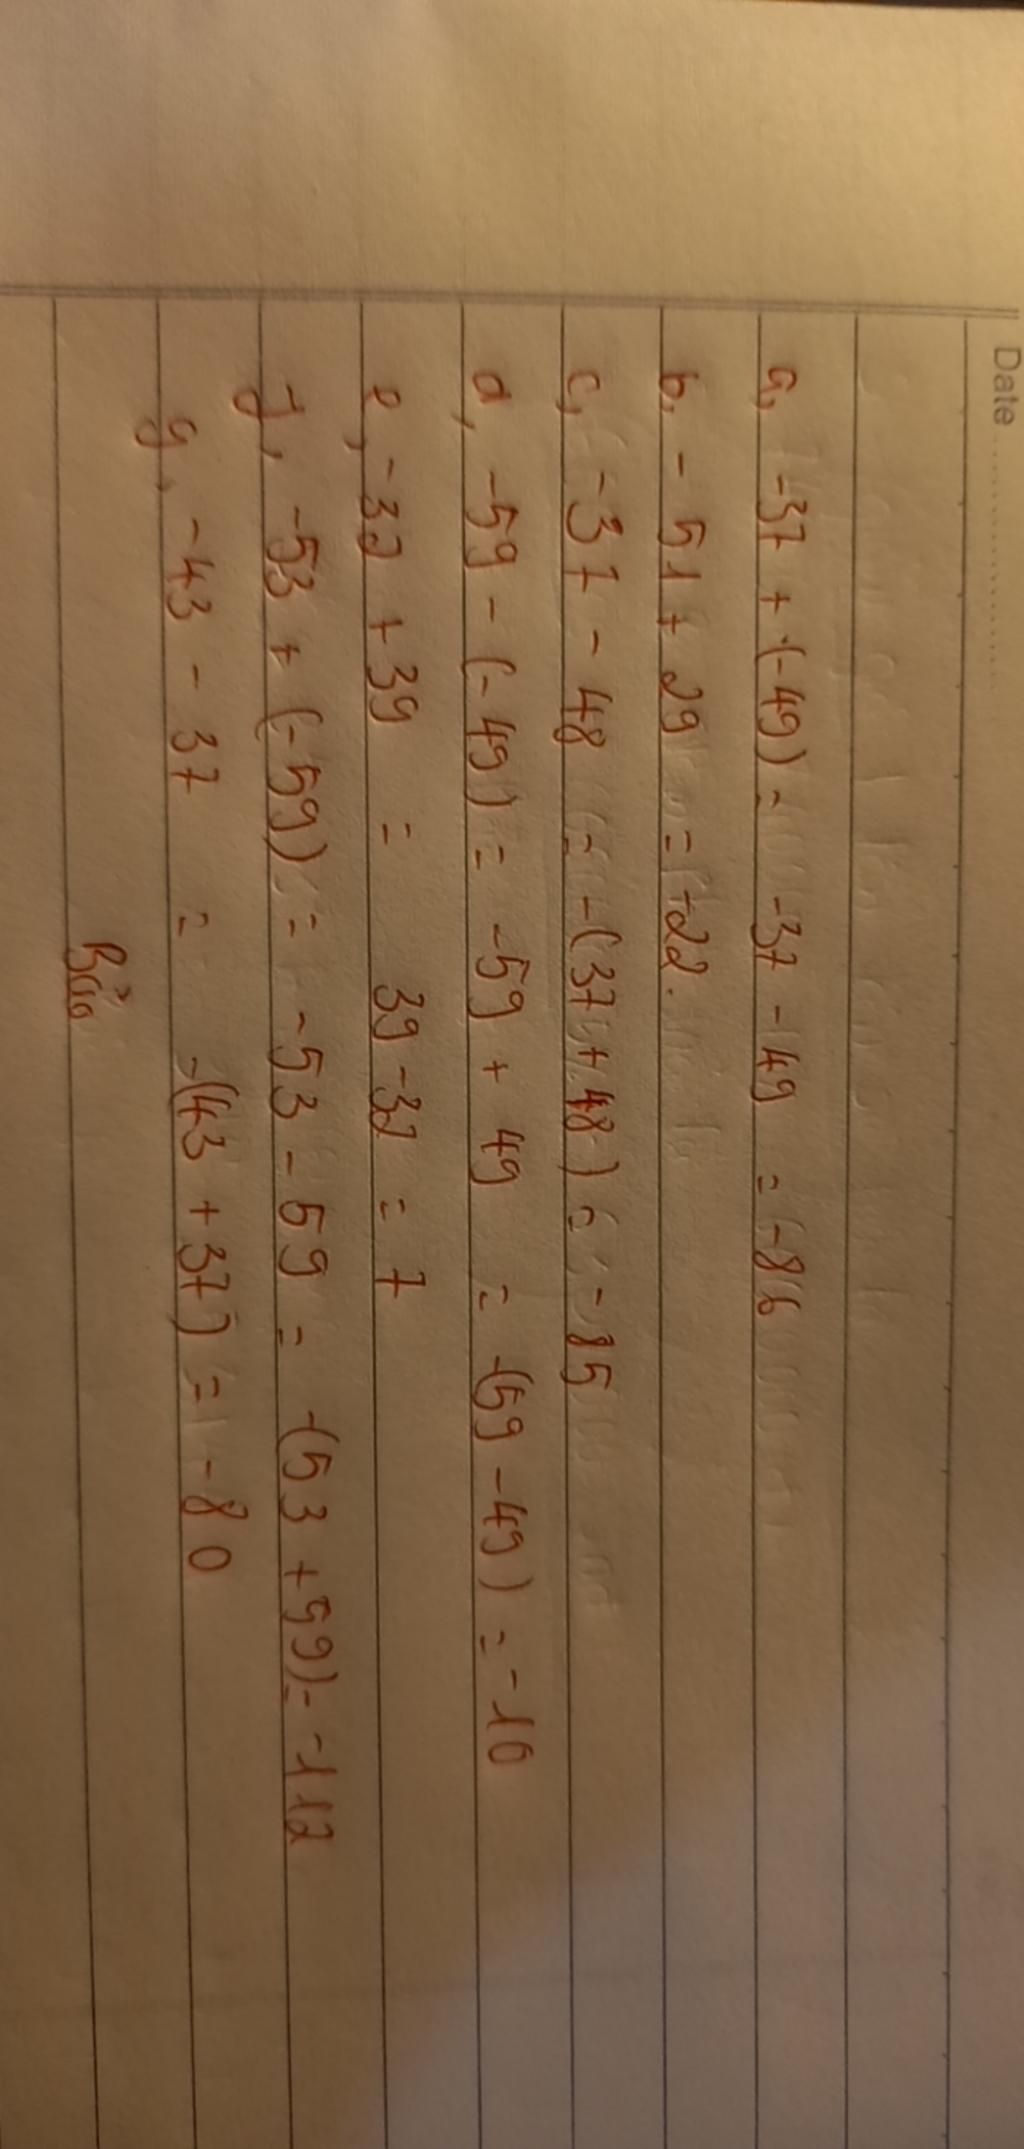 Date
a, -37 + (-49) = -37 - 49 = -86
b, - 51 + 29 = -22.
c, -37 - 48 = -(37 + 48) = -85
d, -59 - (-49) = -59 + 49 = -(59 - 49) = -10
e, -32 + 39 = 39 - 32 = 7
f, -53 + (-59) = -53 - 59 = -(53 + 59) = -112
g, -43 - 37 = -(43 + 37) = -80